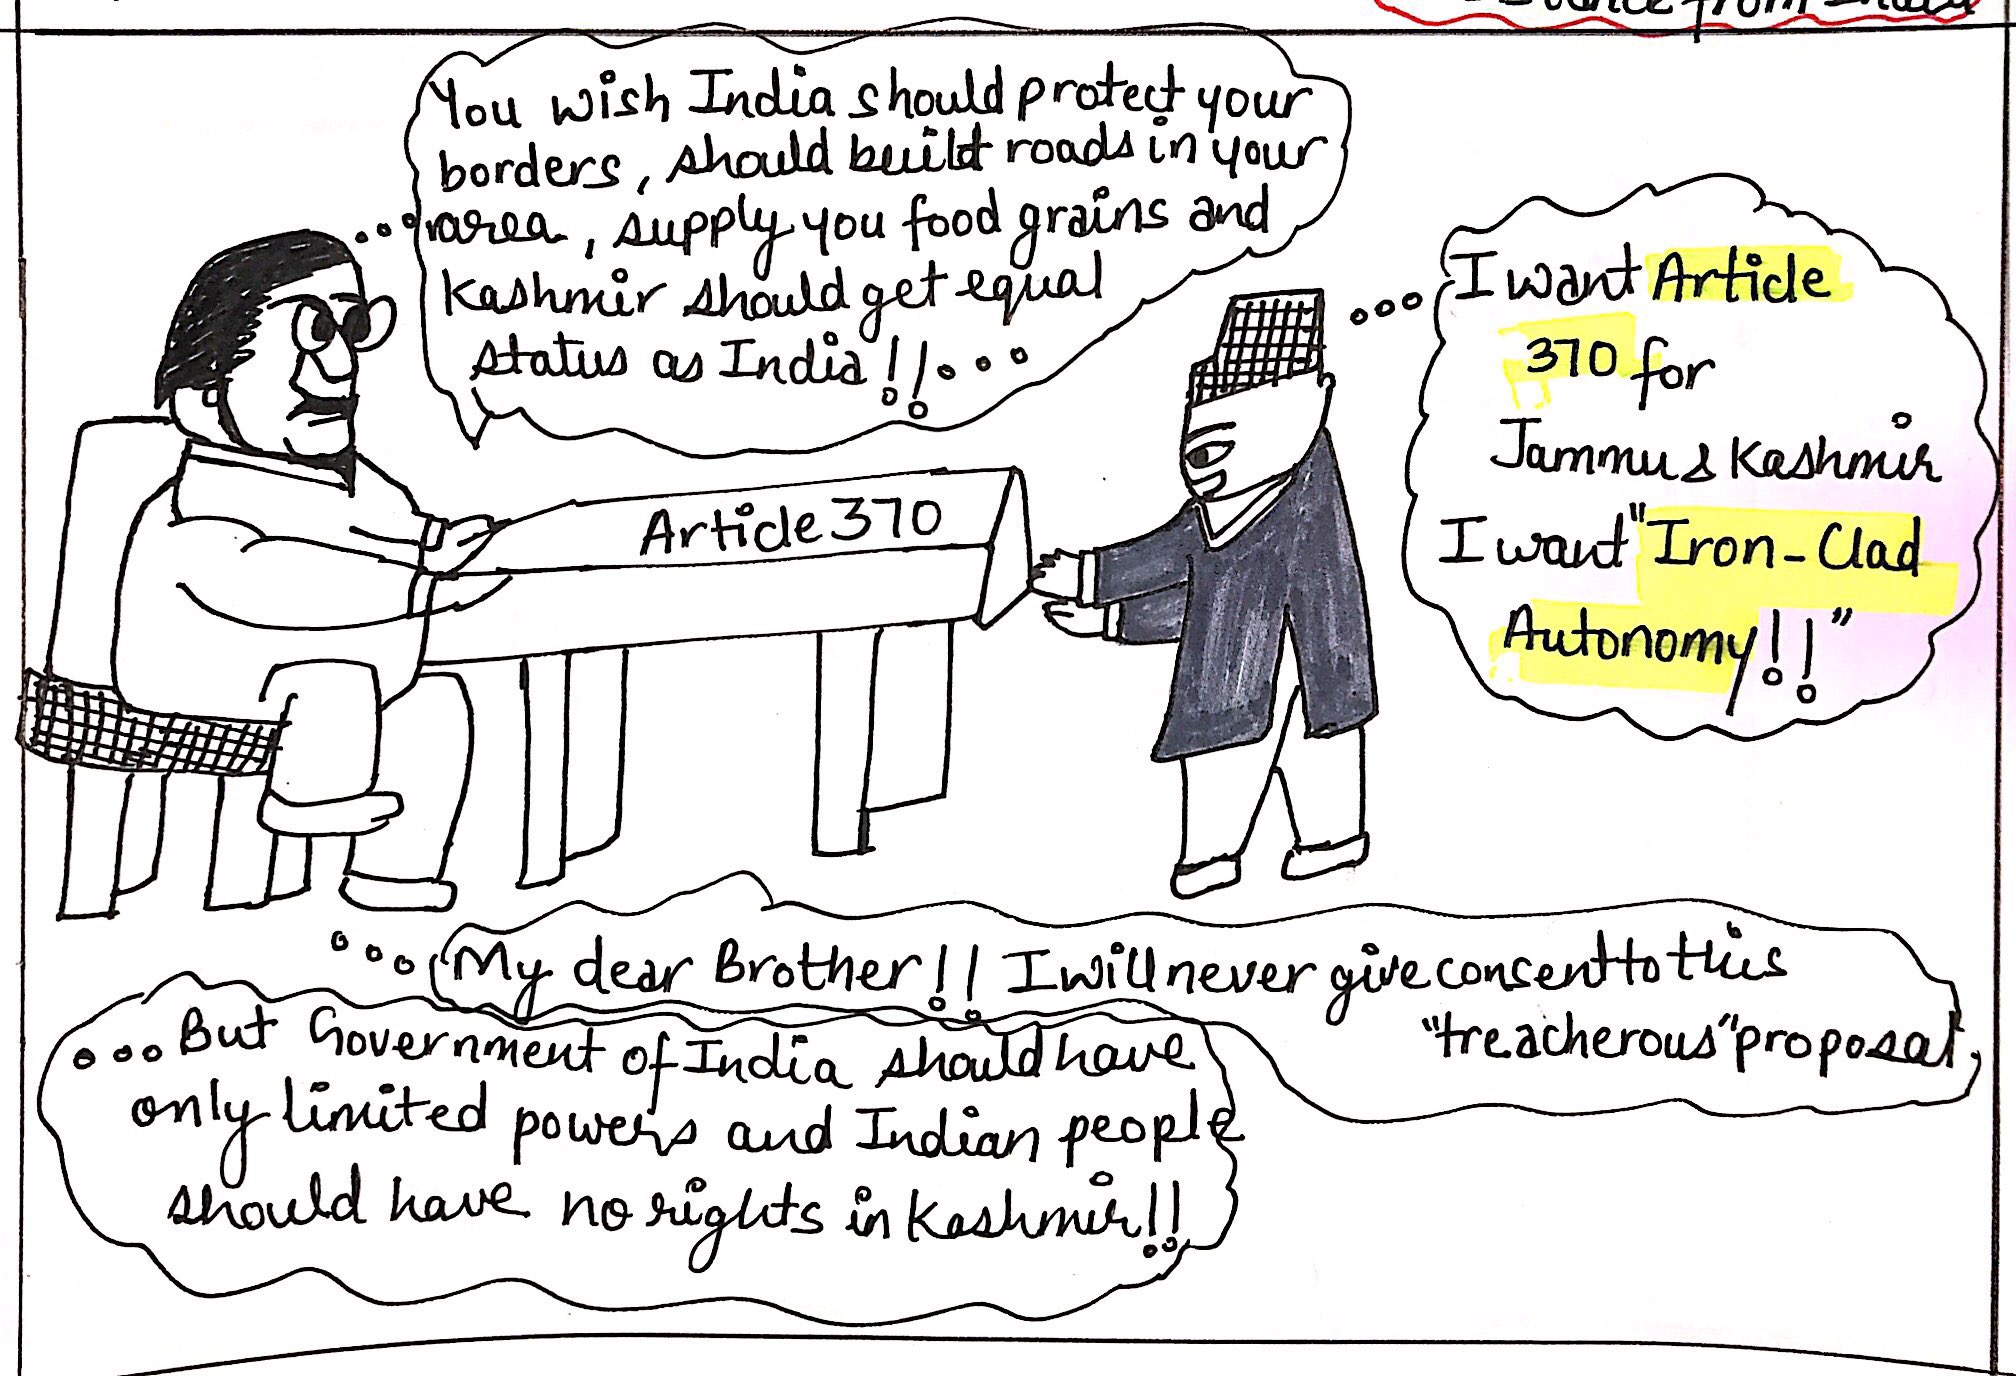 You wish India should protect your
borders, should built roads in your
area, supply you food grains and
Kashmir should get equal
status as India!!...
I want Article
370 for
Jammu & Kashmir
I want "Iron-Clad
Autonomy!!"
Article 370
...My dear Brother!! I will never give consent to this
"treacherous" proposal.
...But Government of India should have
only limited powers and Indian people
should have no rights in Kashmir!!
from India